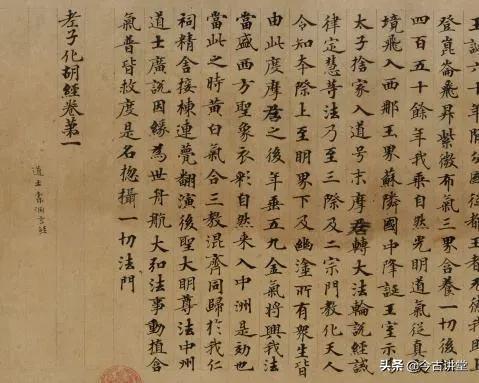 王誕六十年間分國從都王者无德我即上
登崑崙飛昇紫微布氣三界含養一切後
四百五十餘年我乘自然光明道氣從真
境飛入西那玉界蘇隣國中降誕王室示
太子捨家入道号末摩尼轉大法輪說經誡
律定慧等法乃至三際及二宗門教化天人
令知本際上至明界下及幽塗所有衆生皆
由此度摩尼之後年垂五九金氣將興我法
當盛西方聖象衣彩自然來入中洲是効也
當此之時黃白氣合三教混齊同歸於我仁
祠精舍接棟連甍翻演後聖大明尊法中州
道士廣說因緣為世舟航大弘法事動植含
氣普皆救度是名惣攝一切法門
老子化胡經卷第一
道士索洞玄經
头条 @今古讲堂